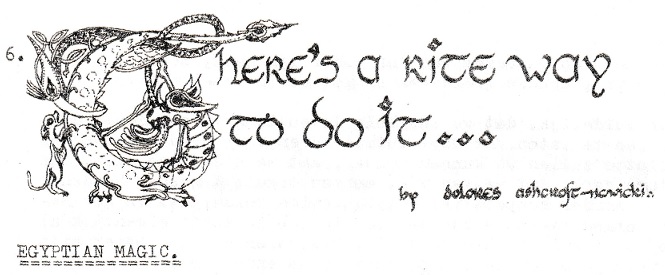 6. There's a rite way
to do it...
by dolores ashcroft-nowicki.
EGYPTIAN MAGIC.